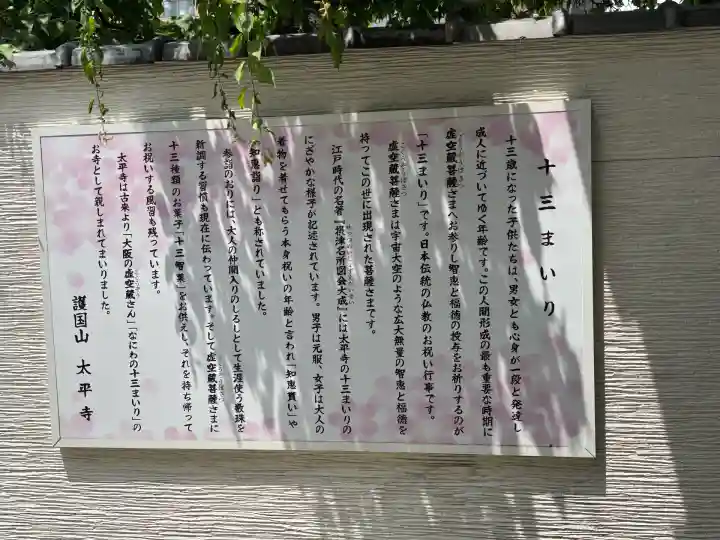 十三まいり
十三歳になった子供たちは、男女とも心身が一段と発達し
成人に近づいてゆく年齢です。この人間形成の最も重要な時期に
虚空蔵菩薩さまへお参りし智恵と福徳の授与をお祈りするのが
「十三まいり」です。日本伝統の仏教のお祝い行事です。
虚空蔵菩薩さまは宇宙大空のような広大無量の智恵と福徳を
持ってこの世に出現された菩薩さまです。
江戸時代の名著『摂津名所図会大成』には太平寺の十三まいりの
にぎやかな様子が記述されています。男子は元服、女子は大人の
着物を着せてもらう本身祝いの年齢と言われ「知恵貰い」や
「知恵詣り」とも称されていました。
参詣のおりには、大人の仲間入りのしるしとして生涯使う数珠を
新調する習慣も現在に伝わっています。そして虚空蔵菩薩さまに
十三種類のお菓子「十三智菓」をお供えし、それを持ち帰って
お祝いする風習も残っています。
太平寺は古来より「大阪の虚空蔵さん」「なにわの十三まいり」の
お寺として親しまれてまいりました。
護国山 太平寺